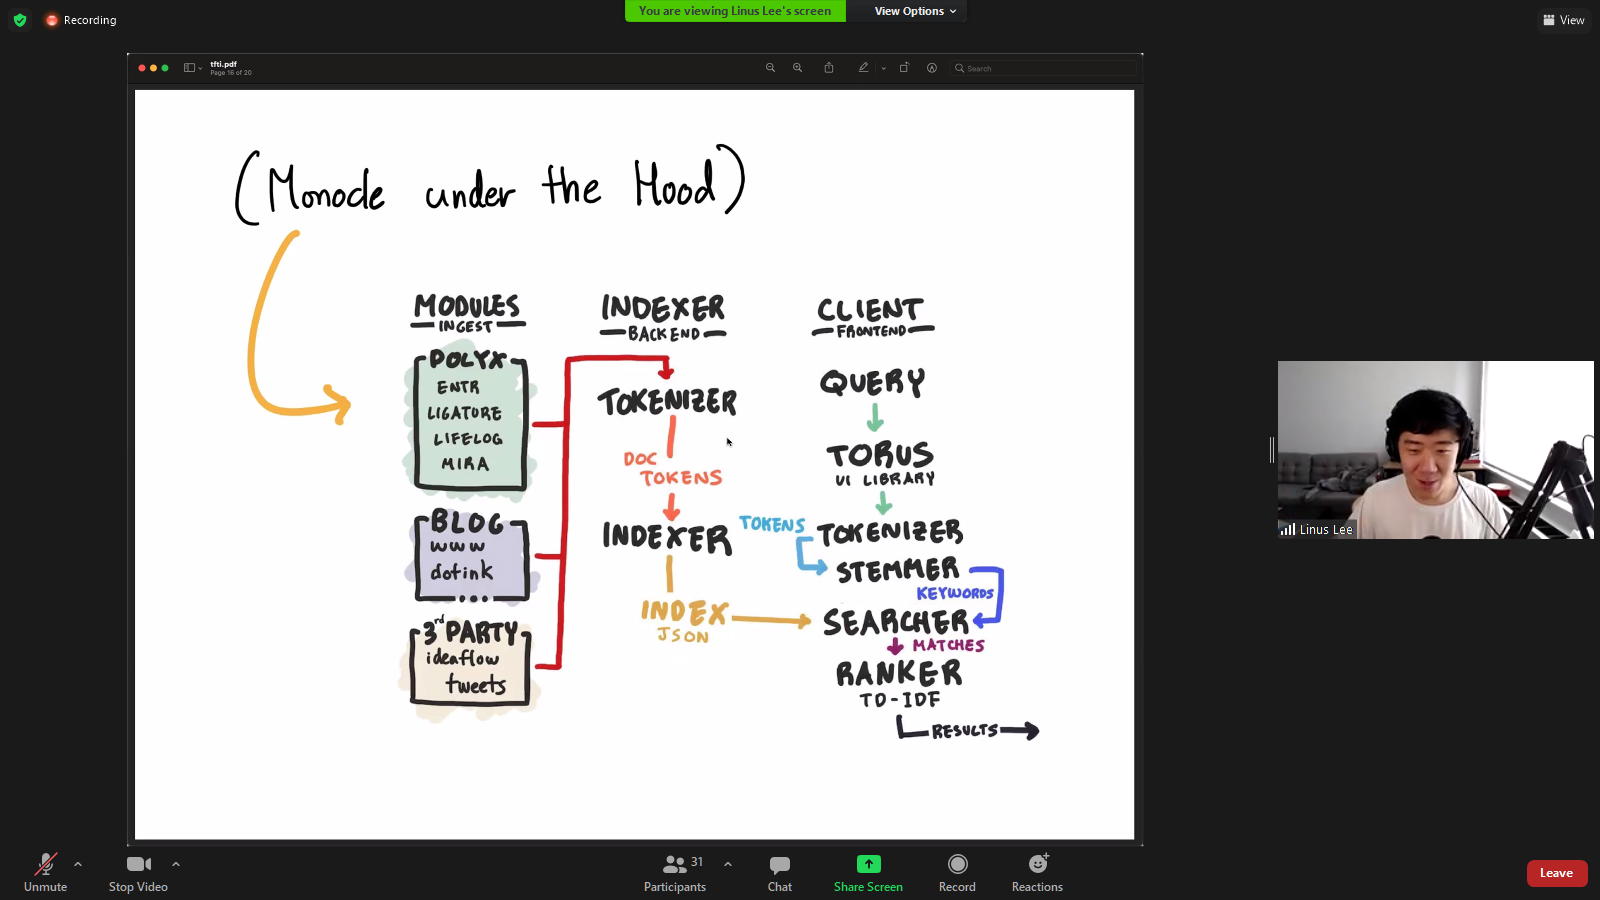 Recording
You are viewing Linus Lee's screen
View Options
View
tfti.pdf
Page 16 of 20
Search
(Monocle under the Hood)
MODULES
INGEST
POLYX
ENTR
LIGATURE
LIFELOG
MIRA
BLOG
www
dotink
...
3rd PARTY
ideaflow
tweets
INDEXER
BACKEND
TOKENIZER
DOC
TOKENS
INDEXER
INDEX
JSON
CLIENT
FRONTEND
QUERY
TORUS
UI LIBRARY
TOKENS
TOKENIZER
STEMMER
KEYWORDS
SEARCHER
MATCHES
RANKER
TD-IDF
RESULTS
Linus Lee
Unmute
Stop Video
Participants
31
Chat
Share Screen
Record
Reactions
Leave